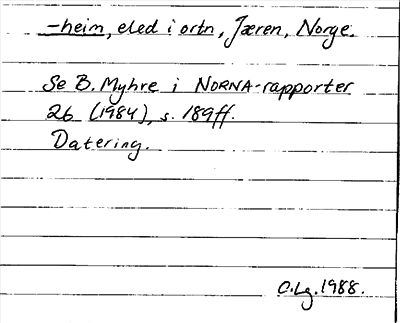 -heim, eled i ortn, Jæren, Norge.
Se B. Myhre i NORNA-rapporter
26 (1984), s. 189ff.
Datering.
O.Lg. 1988.